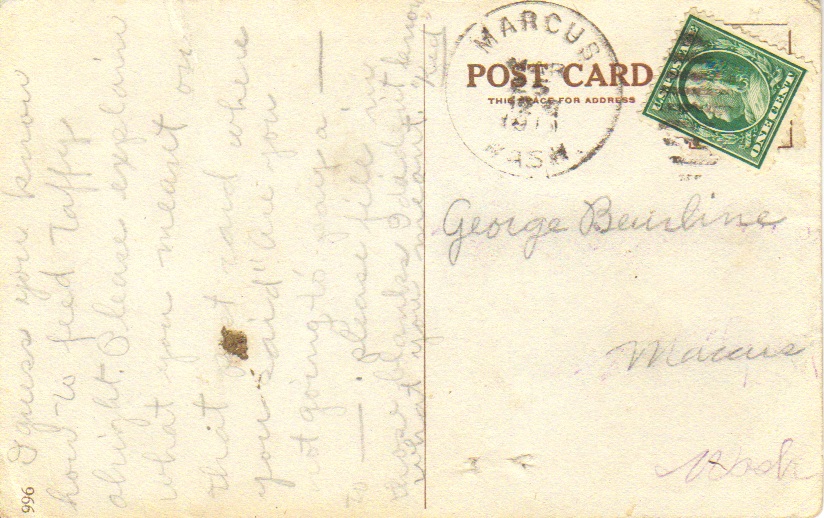 I guess you know
how to feed Taffy
alright. Please explain
what you meant on
that post card where
you said "Are you
not going to pay a —
to — . please fill in
those blanks I didn't know
what you meant.
996
MARCUS
MAR
WASH.
POST CARD
THIS SPACE FOR ADDRESS
U.S. POSTAGE
ONE CENT
George
Marcus
Wash